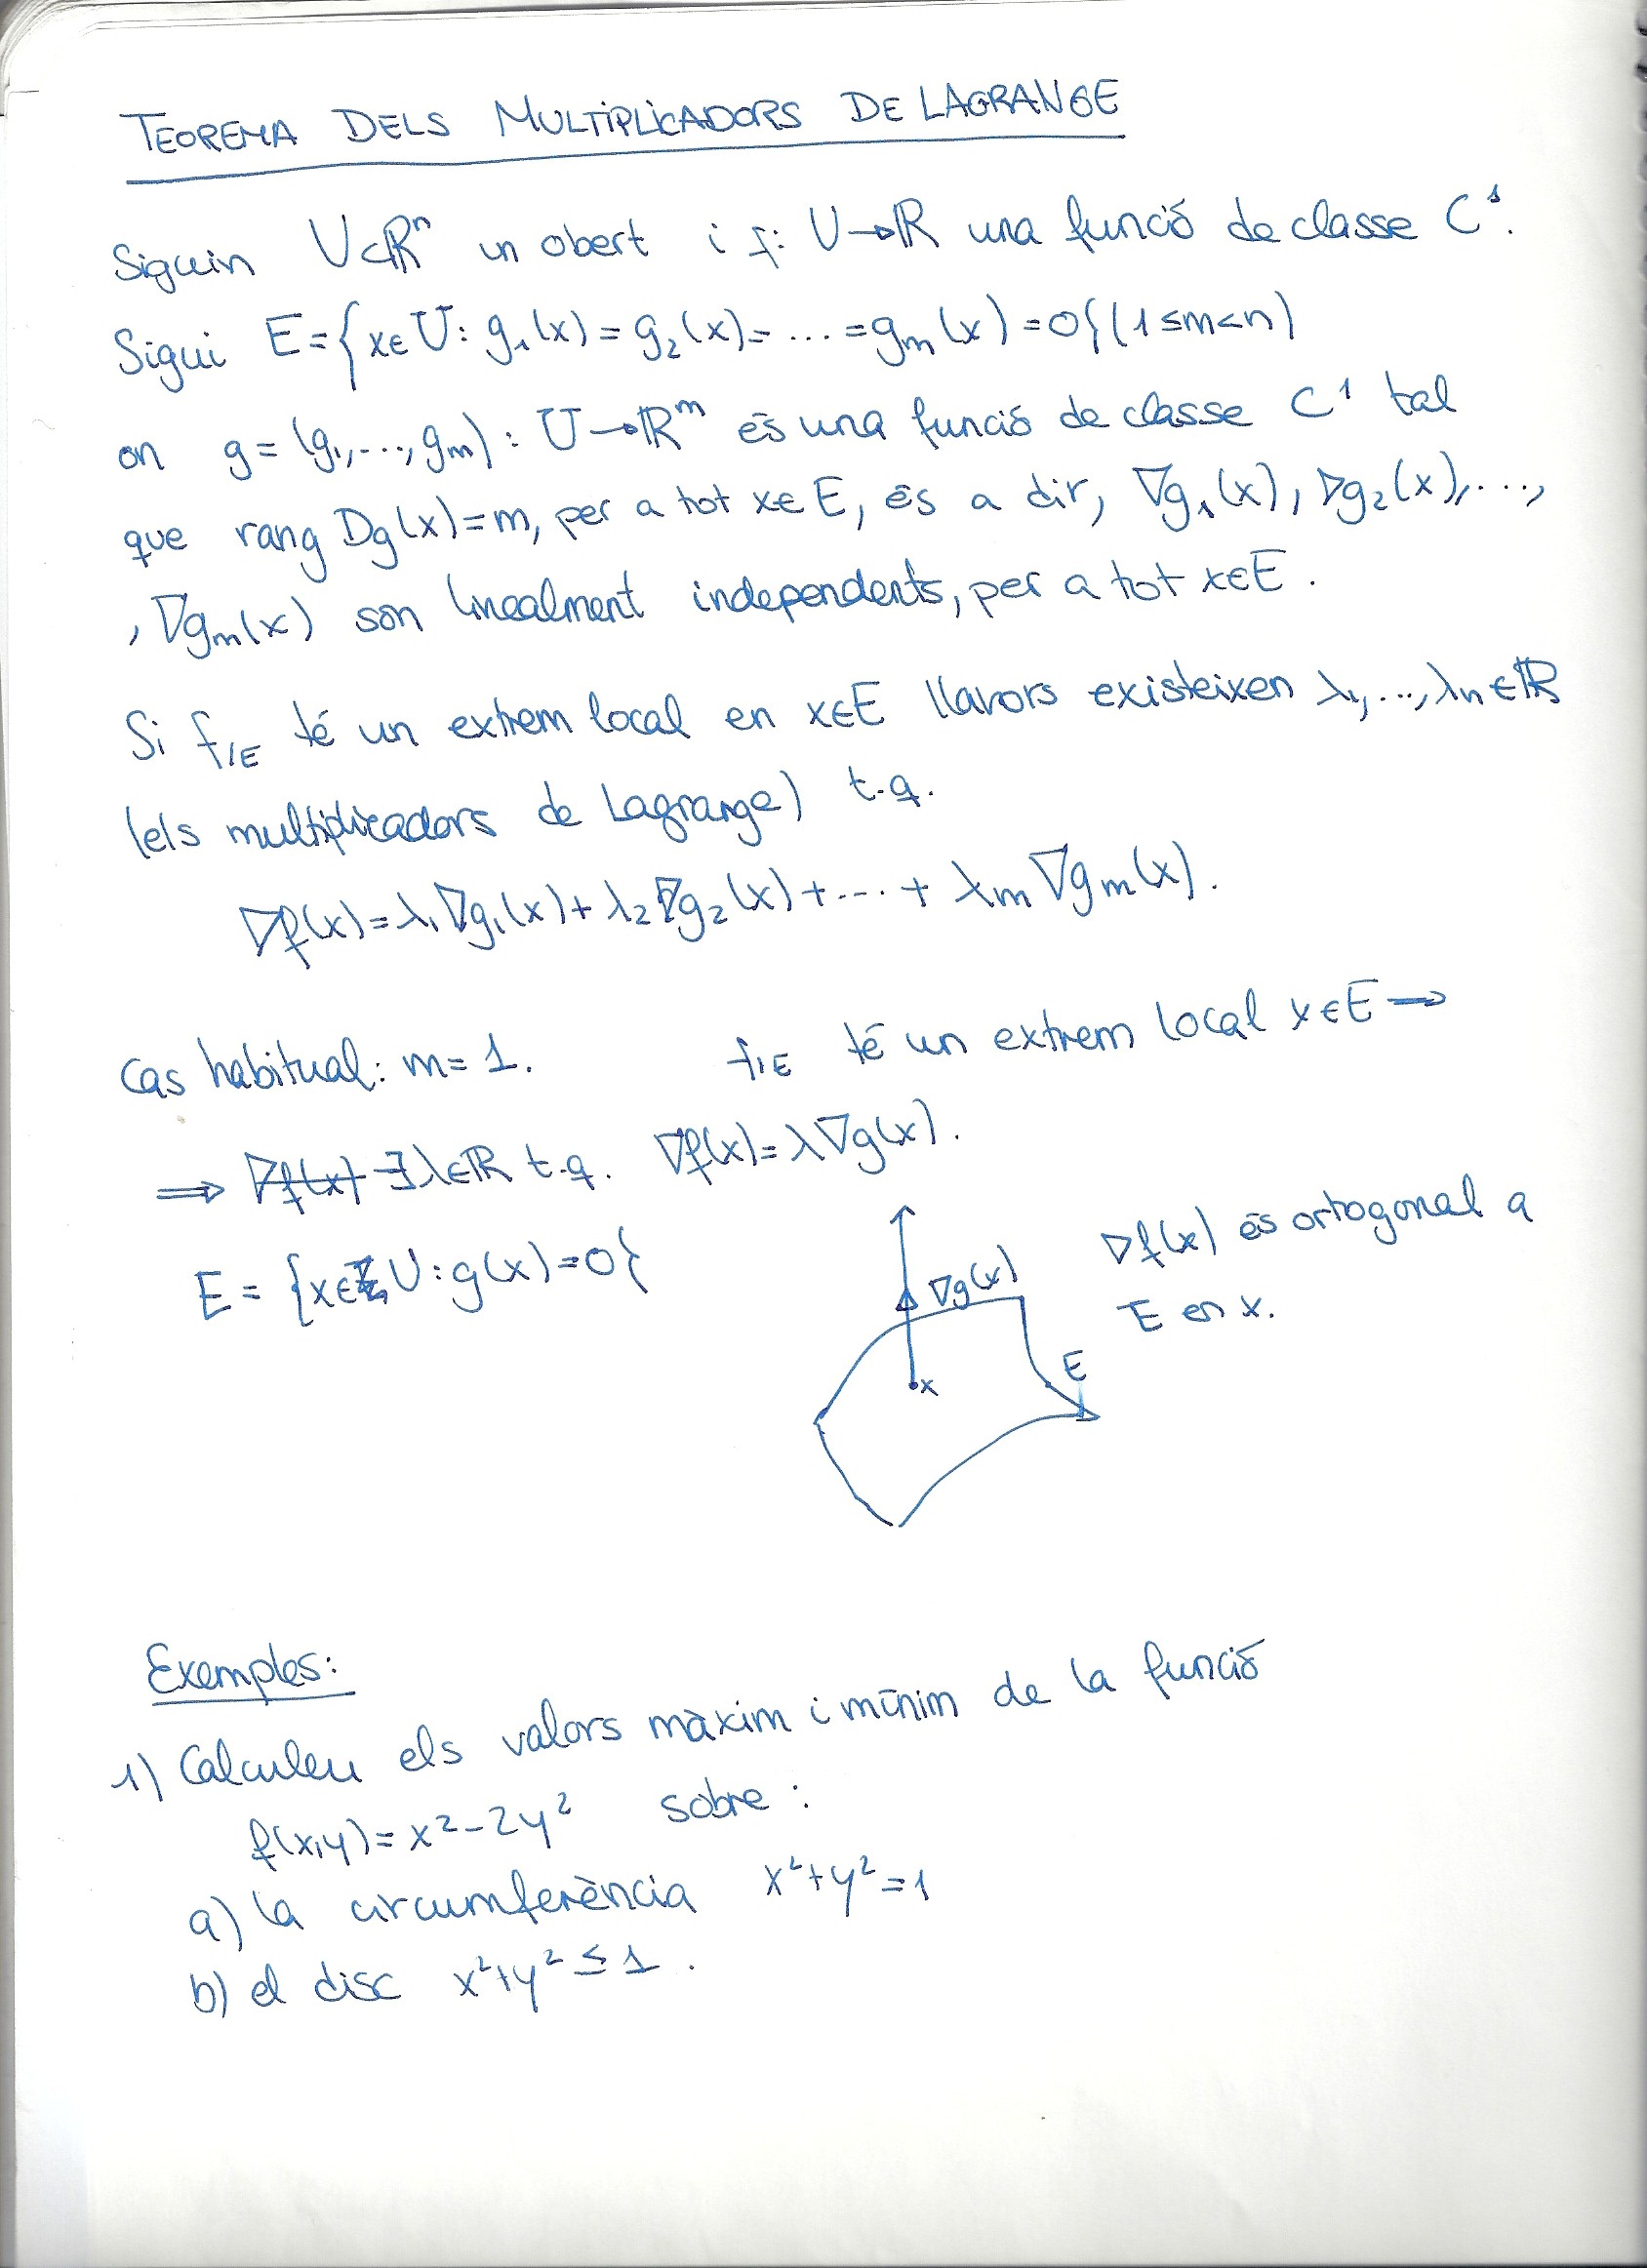 TEOREMA DELS MULTIPLICADORS DE LAGRANGE
Siguin U⊂ℝⁿ un obert i f: U→ℝ una funció de classe C¹.
Sigui E={x∈U: g₁(x)=g₂(x)=...=gₘ(x)=0}(1≤m<n)
on g=(g₁,...,gₘ): U→ℝᵐ és una funció de classe C¹ tal
que rang Dg(x)=m, per a tot x∈E, és a dir, ∇g₁(x), ∇g₂(x),...,
, ∇gₘ(x) son linealment independents, per a tot x∈E.
Si f|E té un extrem local en x∈E llavors existeixen λ₁,...,λₙ∈ℝ
(els multiplicadors de Lagrange) t.q.
∇f(x)=λ₁∇g₁(x)+λ₂∇g₂(x)+...+λₘ∇gₘ(x).
Cas habitual: m=1. f|E té un extrem local x∈E →
⇒ ∇f(x) ∃λ∈ℝ t.q. ∇f(x)=λ∇g(x).
E={x∈U: g(x)=0}
∇g(x)
x
E
∇f(x) és ortogonal a
E en x.
Exemples:
1) Calculeu els valors màxim i mínim de la funció
f(x,y)=x²-2y² sobre:
a) la circumferència x²+y²=1
b) el disc x²+y²≤1.